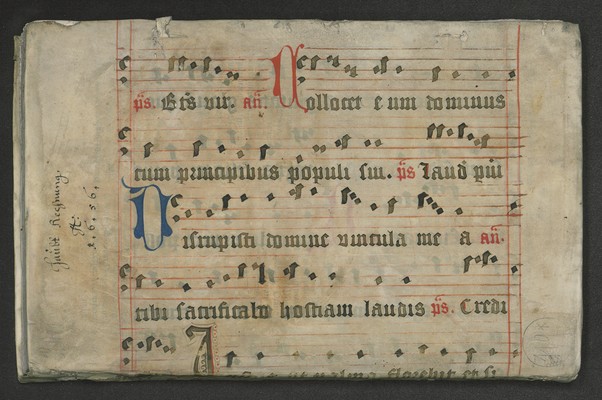 ps. Ets vir. an. Collocet e um dominus
cum principibus populi sui. ps Laud pu̅i
Disrupisti domine vincula me a an.
tibi sacrificabo hostiam laudis ps. Credi
Rechnung.
1.6.56.